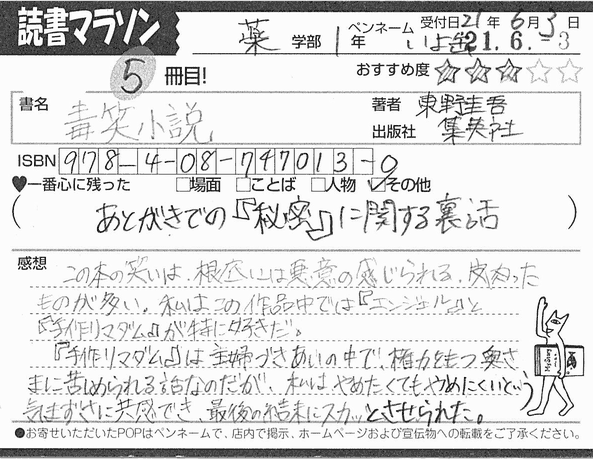 読書マラソン
薬 学部 1年 ペンネーム いよ 受付日 21年6月3日
21.6.-3
5 冊目!
おすすめ度 ☆☆☆☆☆
書名 毒笑小説
著者 東野圭吾
出版社 集英社
ISBN 978-4-08-747013-0
♥一番心に残った □場面 □ことば □人物 ☑その他
(あとがきでの『秘密』に関する裏話)
感想
この本の笑いは、根底には悪意の感じられる、皮肉った
ものが多い。私はこの作品中では『エンジェル』と
『手作りマダム』が特に好きだ。
『手作りマダム』は主婦づきあいの中で、権力をもつ奥さ
まに苦しめられる話なのだが、私はやめたくてもやめにくいという
気まずさに共感でき、最後の結末にスカッとさせられた。
●お寄せいただいたPOPはペンネームで、店内で掲示、ホームページおよび宣伝物への転載をご了承ください。